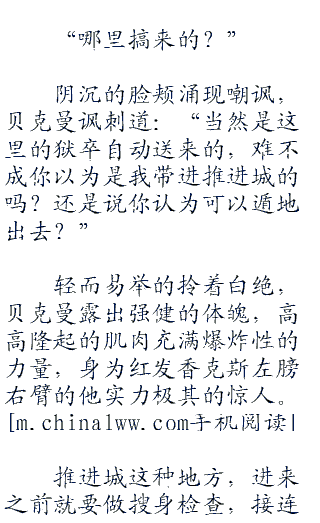 “哪里搞来的？”
阴沉的脸颊涌现嘲讽，
贝克曼讽刺道：“当然是这
里的狱卒自动送来的，难不
成你以为是我带进推进城的
吗？还是说你认为可以遁地
出去？”
轻而易举的拎着白绝，
贝克曼露出强健的体魄，高
高隆起的肌肉充满爆炸性的
力量，身为红发香克斯左膀
右臂的他实力极其的惊人。
[m.chinalww.com手机阅读|
推进城这种地方，进来
之前就要做搜身检查，接连